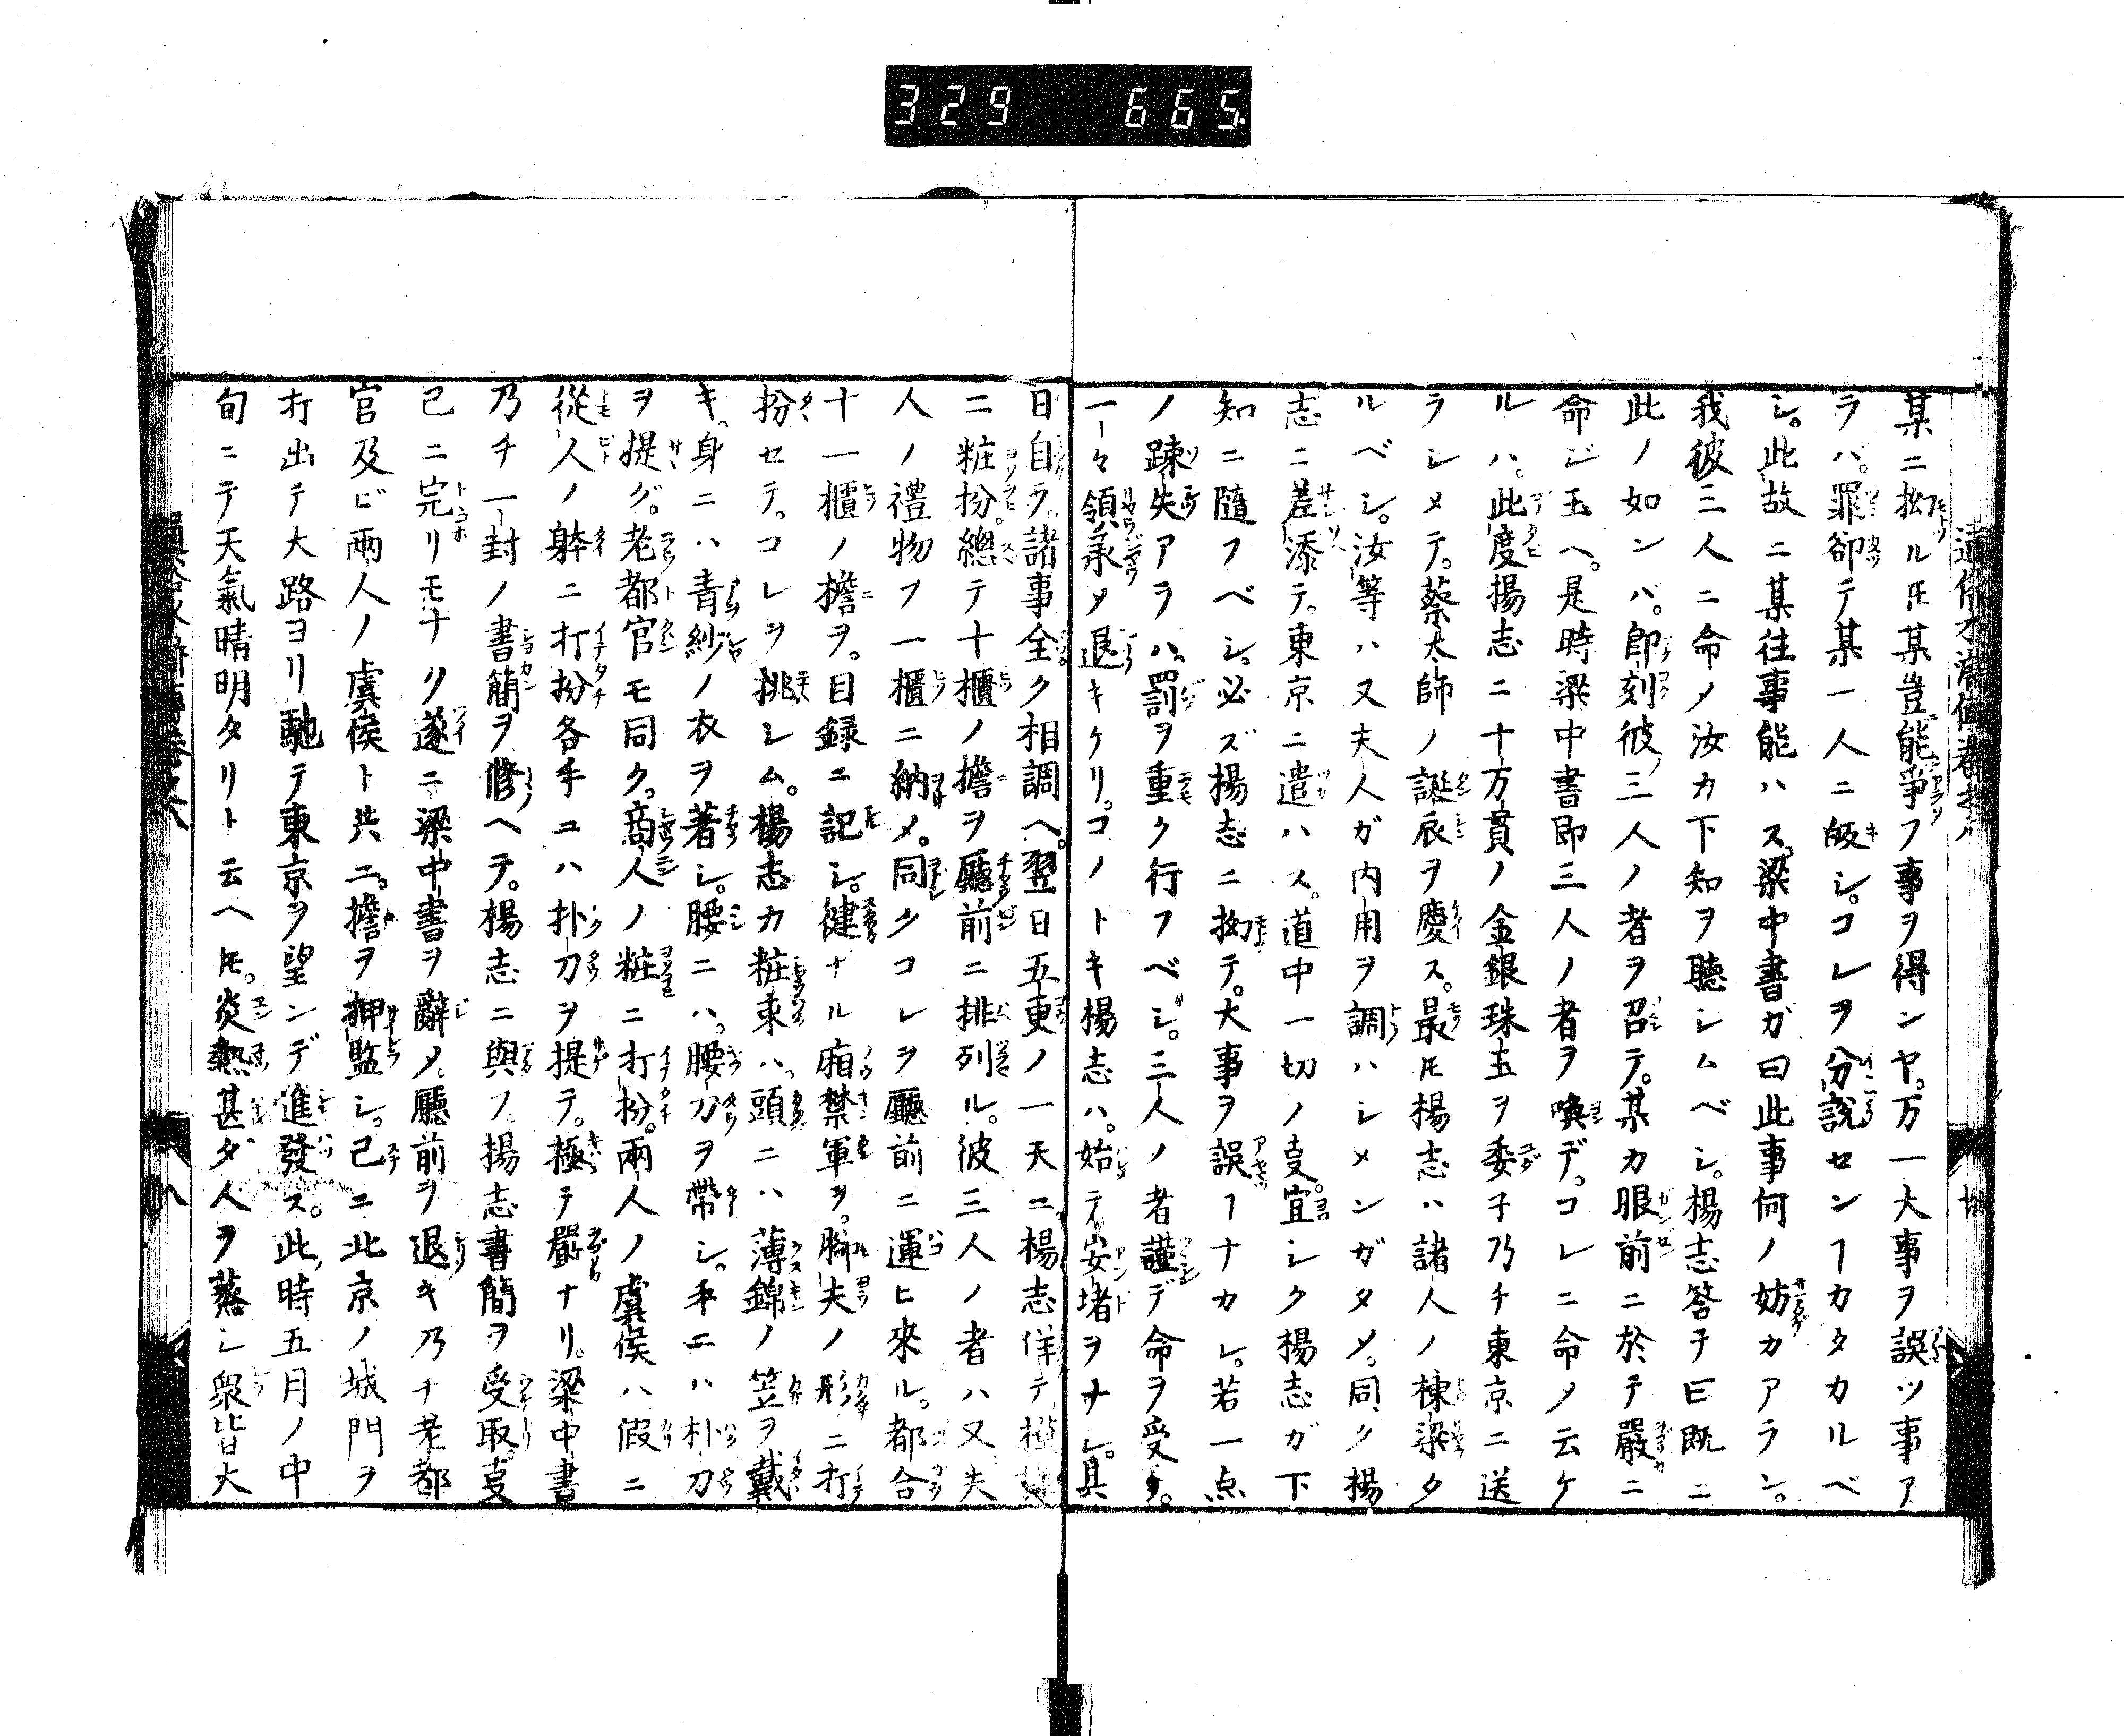 329 665
某ニ拗ル𪜈某豈能爭フ事ヲ得ンヤ。万一大事ヲ誤ツ事ア
ラバ。罪卻テ某一人ニ皈シ。コレヲ分説センヿカタカルベ
シ。此故ニ某往事能ハス。梁中書ガ曰此事何ノ妨カアラン。
我彼三人ニ命ノ汝カ下知ヲ聽シムベシ。楊志答テ曰既ニ
此ノ如ンバ。即刻彼三人ノ者ヲ召テ。某カ眼前ニ於テ嚴ニ
命ジ玉ヘ。是時梁中書即三人ノ者ヲ喚デ。コレニ命メ云ケ
ルハ。此度揚志ニ十万貫ノ金銀珠玉ヲ委子乃チ東京ニ送
ラシメテ。蔡太師ノ誕辰ヲ慶ス。最𪜈揚志ハ諸人ノ棟梁タ
ルベシ。汝等ハ又夫人ガ内用ヲ調ハシメンガタメ。同ク楊
志ニ差添テ。東京ニ遣ハス。道中一切ノ㕝。宜シク楊志ガ下
知ニ隨フベシ。必ズ揚志ニ拗テ。大事ヲ誤ヿナカレ。若一点
ノ踈失アラハ。罰ヲ重ク行フベシ。三人ノ者謹デ命ヲ受ケ。
一々領承メ退キケリ。コノトキ楊志ハ。始テ安堵ヲナシ。其
日自ラ。諸事全ク相調ヘ。翌日五更ノ一天ニ。楊志佯テ
ニ粧扮。總テ十櫃ノ擔ヲ廳前ニ排列ル。彼三人ノ者ハ又夫
人ノ禮物ヲ一櫃ニ納メ。同クコレヲ廳前ニ運ヒ來ル。都合
十一櫃ノ擔ヲ。目録ニ記シ。健ナル廂禁軍ヲ。脚夫ノ形ニ打
扮セテ。コレヲ挑シム。楊志カ粧束ハ。頭ニハ薄錦ノ笠ヲ戴
キ。身ニハ青紗ノ衣ヲ著シ。腰ニハ。腰刀ヲ帶シ。手ニハ朴刀
ヲ提グ。老都官モ同ク。商人ノ粧ニ打扮。兩人ノ虞侯ハ假ニ
從人ノ躰ニ打扮各手ニハ朴刀ヲ提テ。極テ嚴ナリ。梁中書
乃チ一封ノ書簡ヲ修ヘテ。楊志ニ與フ揚志書簡ヲ受取。㕝
已ニ完リモナリ遂ニ梁中書ヲ辭メ。廳前ヲ退キ乃チ老都
官及ビ兩人ノ虞侯ト共ニ。擔ヲ押監シ。已ニ北京ノ城門ヲ
打出テ大路ヨリ馳テ東京ヲ望ンデ進發ス。此時五月ノ中
旬ニテ天氣晴明タリト云ヘ𪜈。炎熱甚ダ人ヲ蒸シ衆皆大